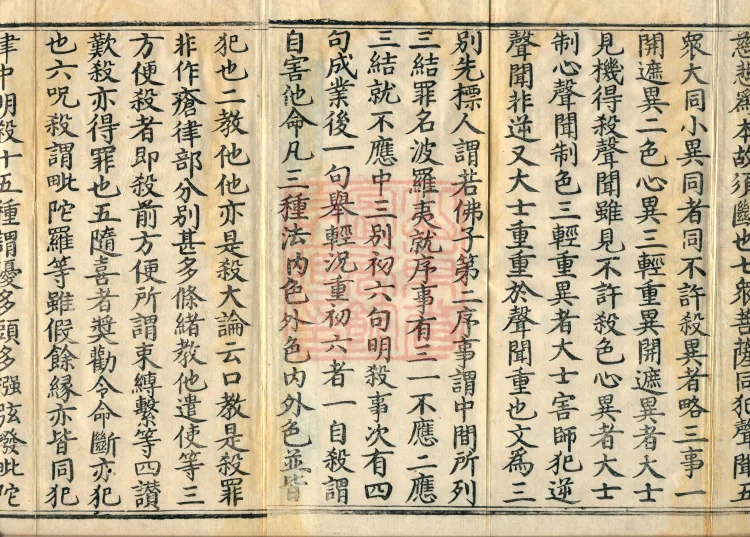 慈悲爲本故須斷也七衆菩薩同犯聲聞五
衆大同小異同者同不許殺異者略三事一
開遮異二色心異三輕重異開遮異者大士
見機得殺聲聞雖見不許殺色心異者大士
制心聲聞制色三輕重異者大士害師犯逆
聲聞非逆又大士重重於聲聞重也文爲三
別先標人謂若佛子第二序事謂中間所列
三結罪名波羅夷就序事有三一不應二應
三結就不應中三別初六句明殺事次有四
句成業後一句舉輕況重初六者一自殺謂
自害他命凡三種法内色外色内外色並皆
犯也二教他他亦是殺大論云口教是殺罪
非作瘡律部分別甚多條緒教他遣使等三
方便殺者即殺前方便所謂束縛繫等四讃
歎殺亦得罪也五隨喜者奬勸令命斷亦犯
也六呪殺謂毗陀羅等雖假餘縁亦皆同犯
聿中明殺十五種謂優多頭多䌸弦撥毗陀